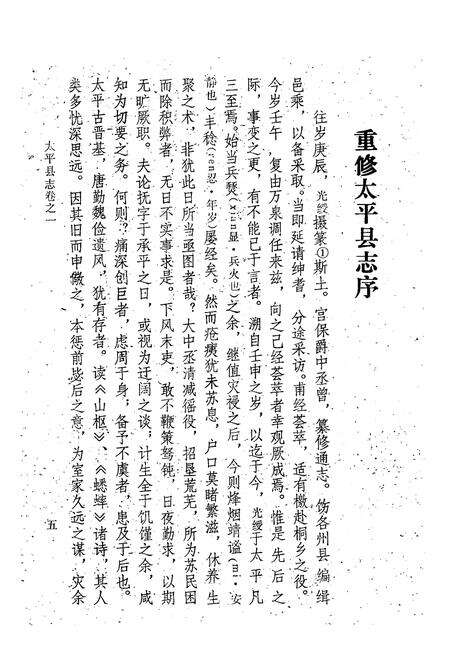 重修太平县志序
往岁庚辰，光绶摄篆①斯土。宫保爵中丞曾，纂修通志。饬各州县编缉
邑乘，以备采取。当即延请绅耆，分途采访。甫经荟萃，适有檄赴桐乡之役。
今岁壬午，复由万泉调任来兹，向之己经荟萃者幸观厥成焉。惟是先后之
际，事变之更，有不能已于言者。溯自壬申之岁，以迄于今，光绶于太平凡
三至焉。始当兵燹(xiǎn显·兵火也)之余，继值灾祲之后，今则烽烟靖谧(mì·安
静也)丰稔(rěn忍·年岁)屡经矣。然而疮痍犹未苏息，户口莫睹繁滋，休养生
聚之术，非犹此日所当亟图者哉？大中丞清减徭役，招垦荒芜，所为苏民困
而除积弊者，无日不实事求是。下风末吏，敢不鞭策驽钝，日夜勤求，以期
无旷厥职。夫论抚字于承平之日，或视为迂阔之谈；计生全于饥馑之余，咸
知为切要之务。何则？痛深创巨者，虑周于身，备予不虞者，患及于后也。
太平古晋基，唐勤魏俭遗风，犹有存者。读《山枢》、《蟋蟀》诸诗，其人
类多忧深思远。因其旧而申儆之，本惩前毖后之意，为室家久远之谋，灾余
太平县志卷之一
五